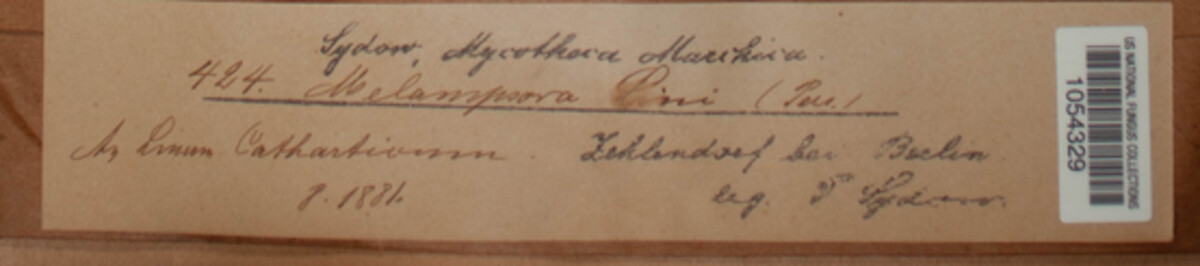 Sydow, Mycotheca Marchica.
424. Melampsora Lini (Pers.)
Linum Catharticum. Zehlendorf bei Berlin
8. 1881. leg. P. Sydow.
US NATIONAL FUNGUS COLLECTIONS
1054329